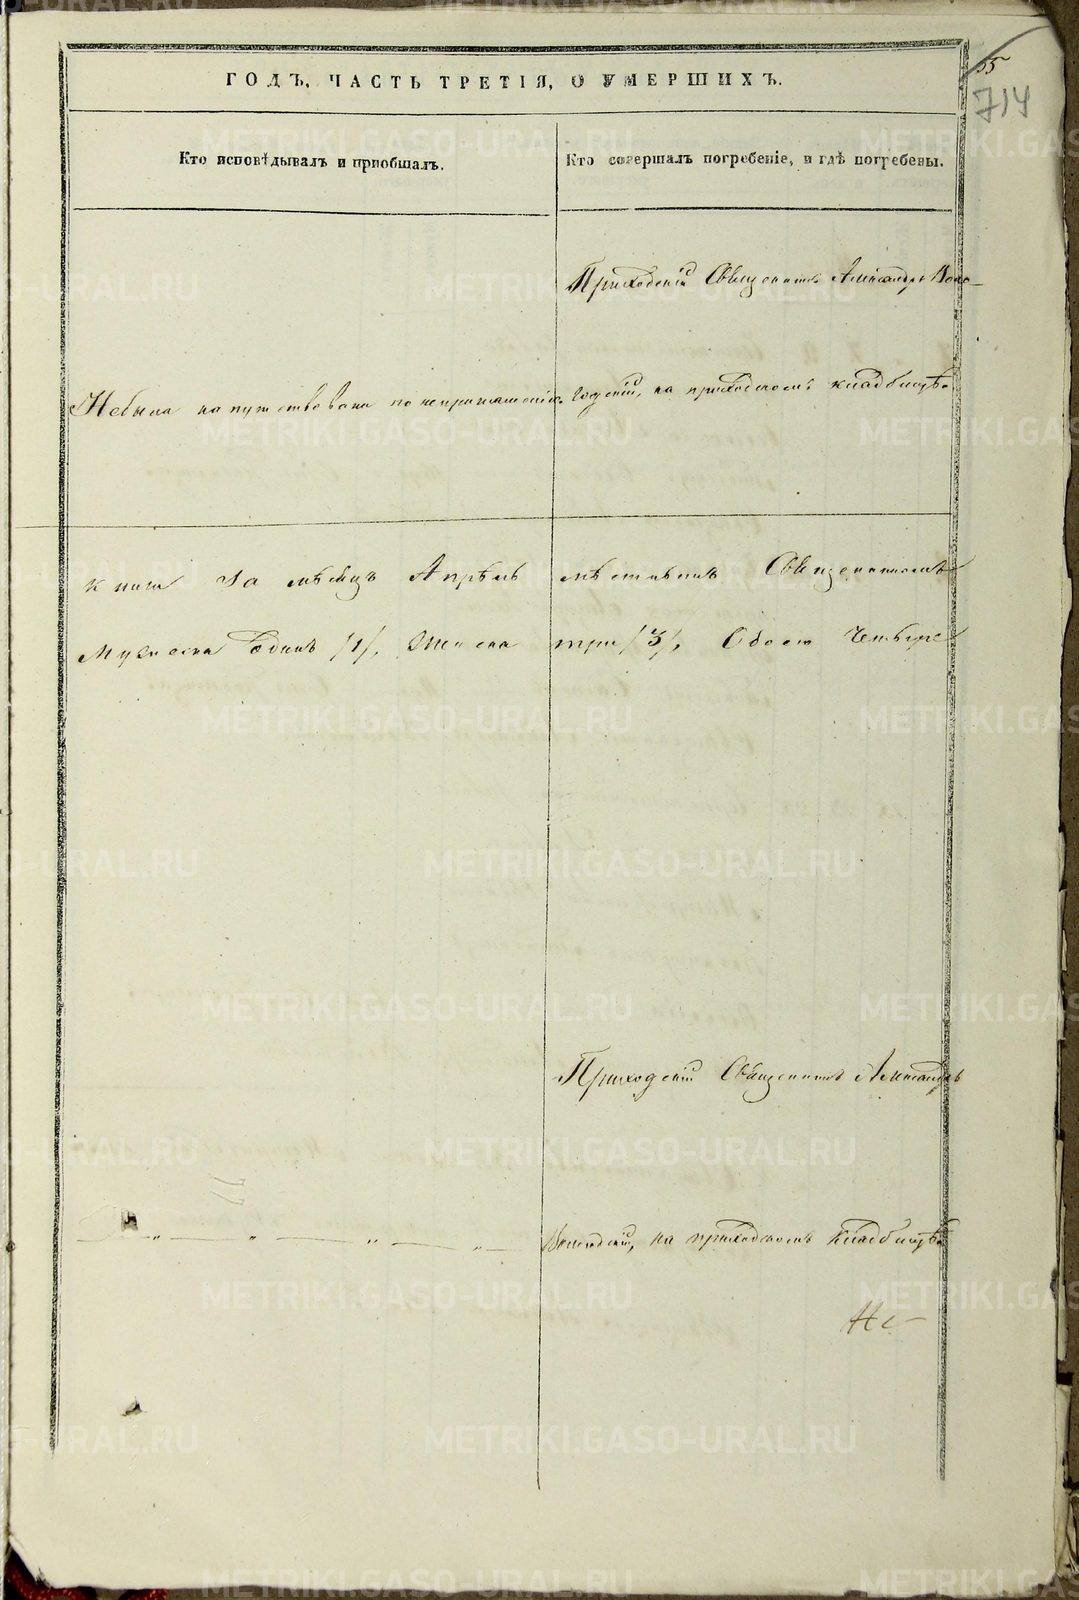 55
714
ГОДЪ, ЧАСТЬ ТРЕТІЯ, О УМЕРШИХЪ.
Кто исповѣдывалъ и пріобщалъ.
Кто совершалъ погребеніе, и гдѣ погребены.
Приходскій Священникъ Александръ Воло-
Небыла напутствована по неприглашенію.
годскій, на приходскомъ кладбищѣ
книги за мѣсяцъ Апрѣль мѣстнымъ Священникомъ
Мужеска одинъ /1/, Женска три /3/, Обоего Четыре
Приходскій Священникъ Александръ
Вологодскій, на приходскомъ кладбищѣ
METRIKI.GASO-URAL.RU